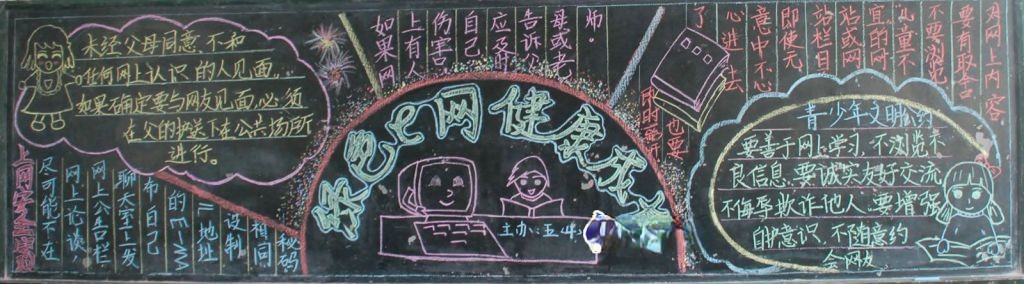 未经父母同意,不和
任何网上认识的人见面,
如果确定要与网友见面,必须
在父的护送下在公共场所
进行。
上网安全
尽可能不在
网上论谈,
网上公告栏,
聊天室上发
布自己
的E-MAIL
地址
设制
相同
秘码
如果网
上有人
伤害
自己
应及时
告诉父
母或老
师。
绿色上网健康成
主办:五4
对网上内容
要有取舍
不要浏览
儿童不
宜的网
站或网
站栏目
即使无
意中不心
心进去
了
也要
青少年文明公约
要善于网上学习,不浏览不
良信息,要诚实友好交流,
不侮辱欺诈他人,要增强
自护意识,不随意约
会网友